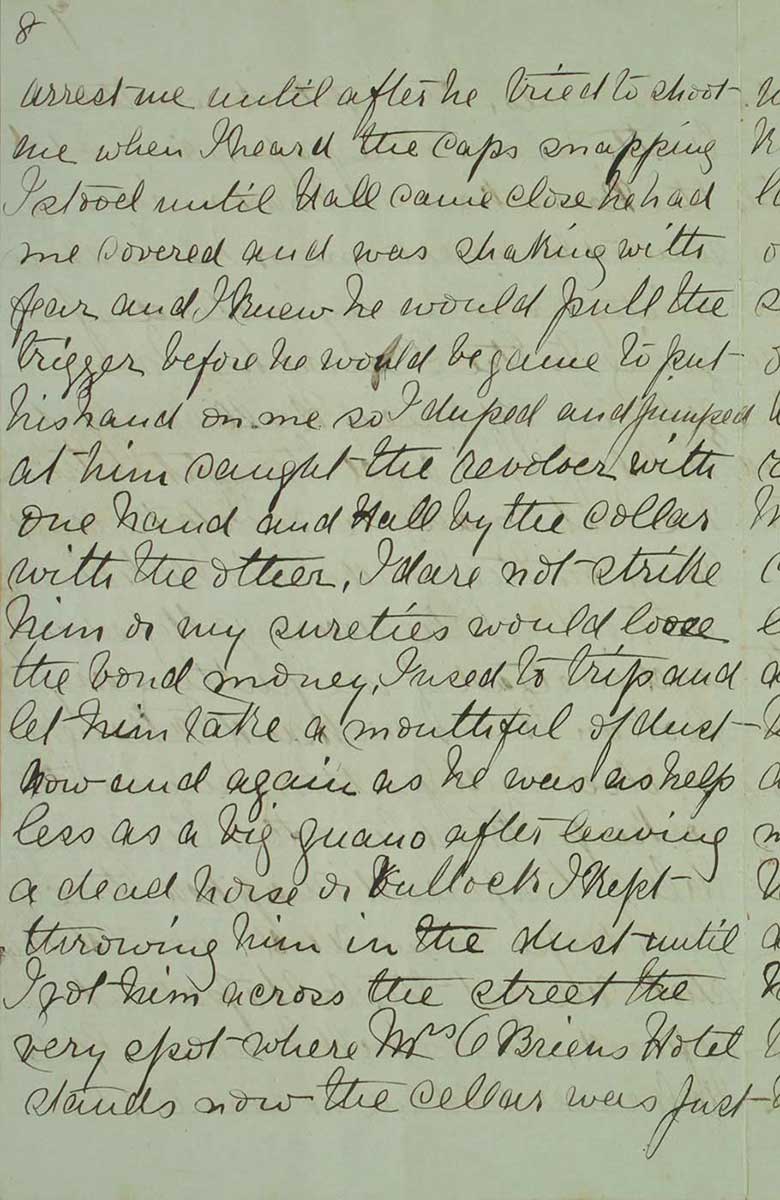 8
arrest me until after he tried to shoot
me when I heard the caps snapping
I stood until Hall came close he had
me covered and was shaking with
fear and I knew he would pull the
trigger before he would be game to put
his hand on me so I duped and jumped
at him caught the revolver with
one hand and Hall by the collar
with the other, I dare not strike
him or my sureties would loose
the bond money, I used to trip and
let him take a mouthful of dust
now and again as he was as help
less as a big guano after leaving
a dead horse or bullock I kept
throwing him in the dust until
I got him across the street the
very spot where Mrs O Briens Hotel
stands now the cellar was just